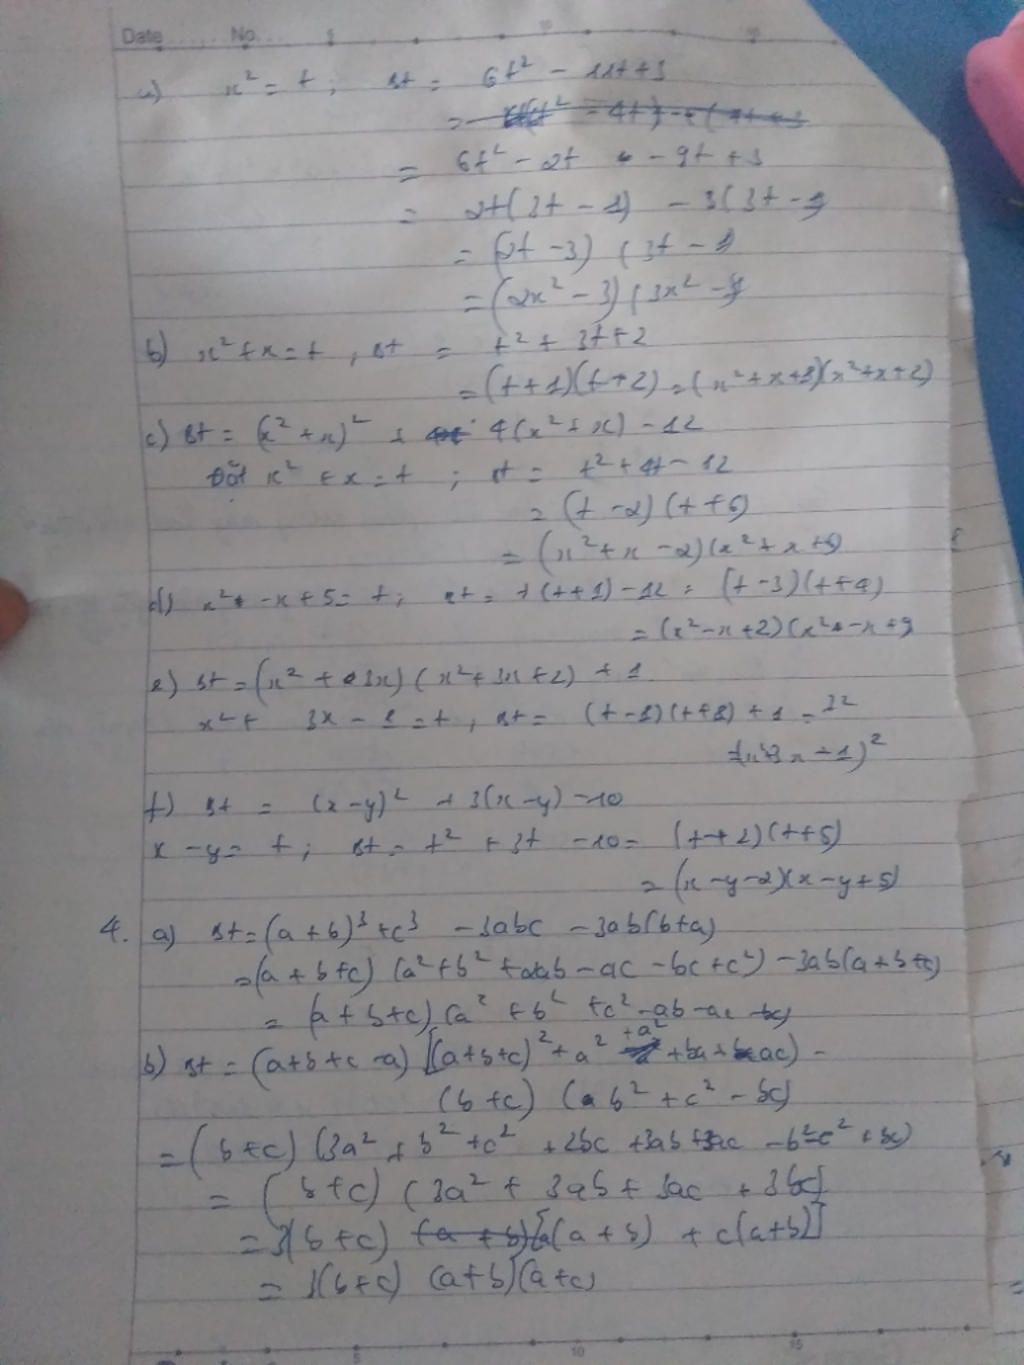 Date ...... No...
a) x² = t ; st = 6t² - 11t + 3
= 6t² - 2t - 9t + 3
= 2t(3t - 1) - 3(3t - 1)
= (2t - 3) (3t - 1
= (2x² - 3) (3x² - 1)
b) x² + x = t , st = t² + 3t + 2
= (t + 1)(t + 2) = (x² + x + 1)(x² + x + 2)
c) st = (x² + x)² + 4(x² + x) - 12
Đặt x² + x = t ; st = t² + 4t - 12
= (t - 2) (t + 6)
= (x² + x - 2)(x² + x + 6)
d) x² - x + 5 = t ; st = t(t + 1) - 12 = (t - 3)(t + 4)
= (x² - x + 2)(x² - x + 9
e) st = (x² + 3x) (x² + 3x + 2) + 1
x² + 3x - 1 = t , st = (t - 1)(t + 1) + 1 =
f) st = (x - y)² + 3(x - y) - 10
x - y = t ; st = t² + 3t - 10 = (t + 2)(t + 5)
= (x - y - 2)(x - y + 5)
4. a) st = (a + b)³ + c³ - 3abc - 3ab(b + a)
= (a + b + c) (a² + b² + 2ab - ac - bc + c²) - 3ab(a + b + c)
= (a + b + c) (a² + b² + c² - ab - ac - bc)
b) st = (a + b + c - a) [(a + b + c)² + a² + a² + ba + ac) -
(b + c) (b² + c² - bc)
= (b + c) (3a² + b² + c² + 2bc + 3ab + 3ac - b² - c² + bc)
= (b + c) (3a² + 3ab + 3ac + 3bc)
= 3(b + c) [a(a + b) + c(a + b)]
= 3(b + c) (a + b)(a + c)
5 10 15